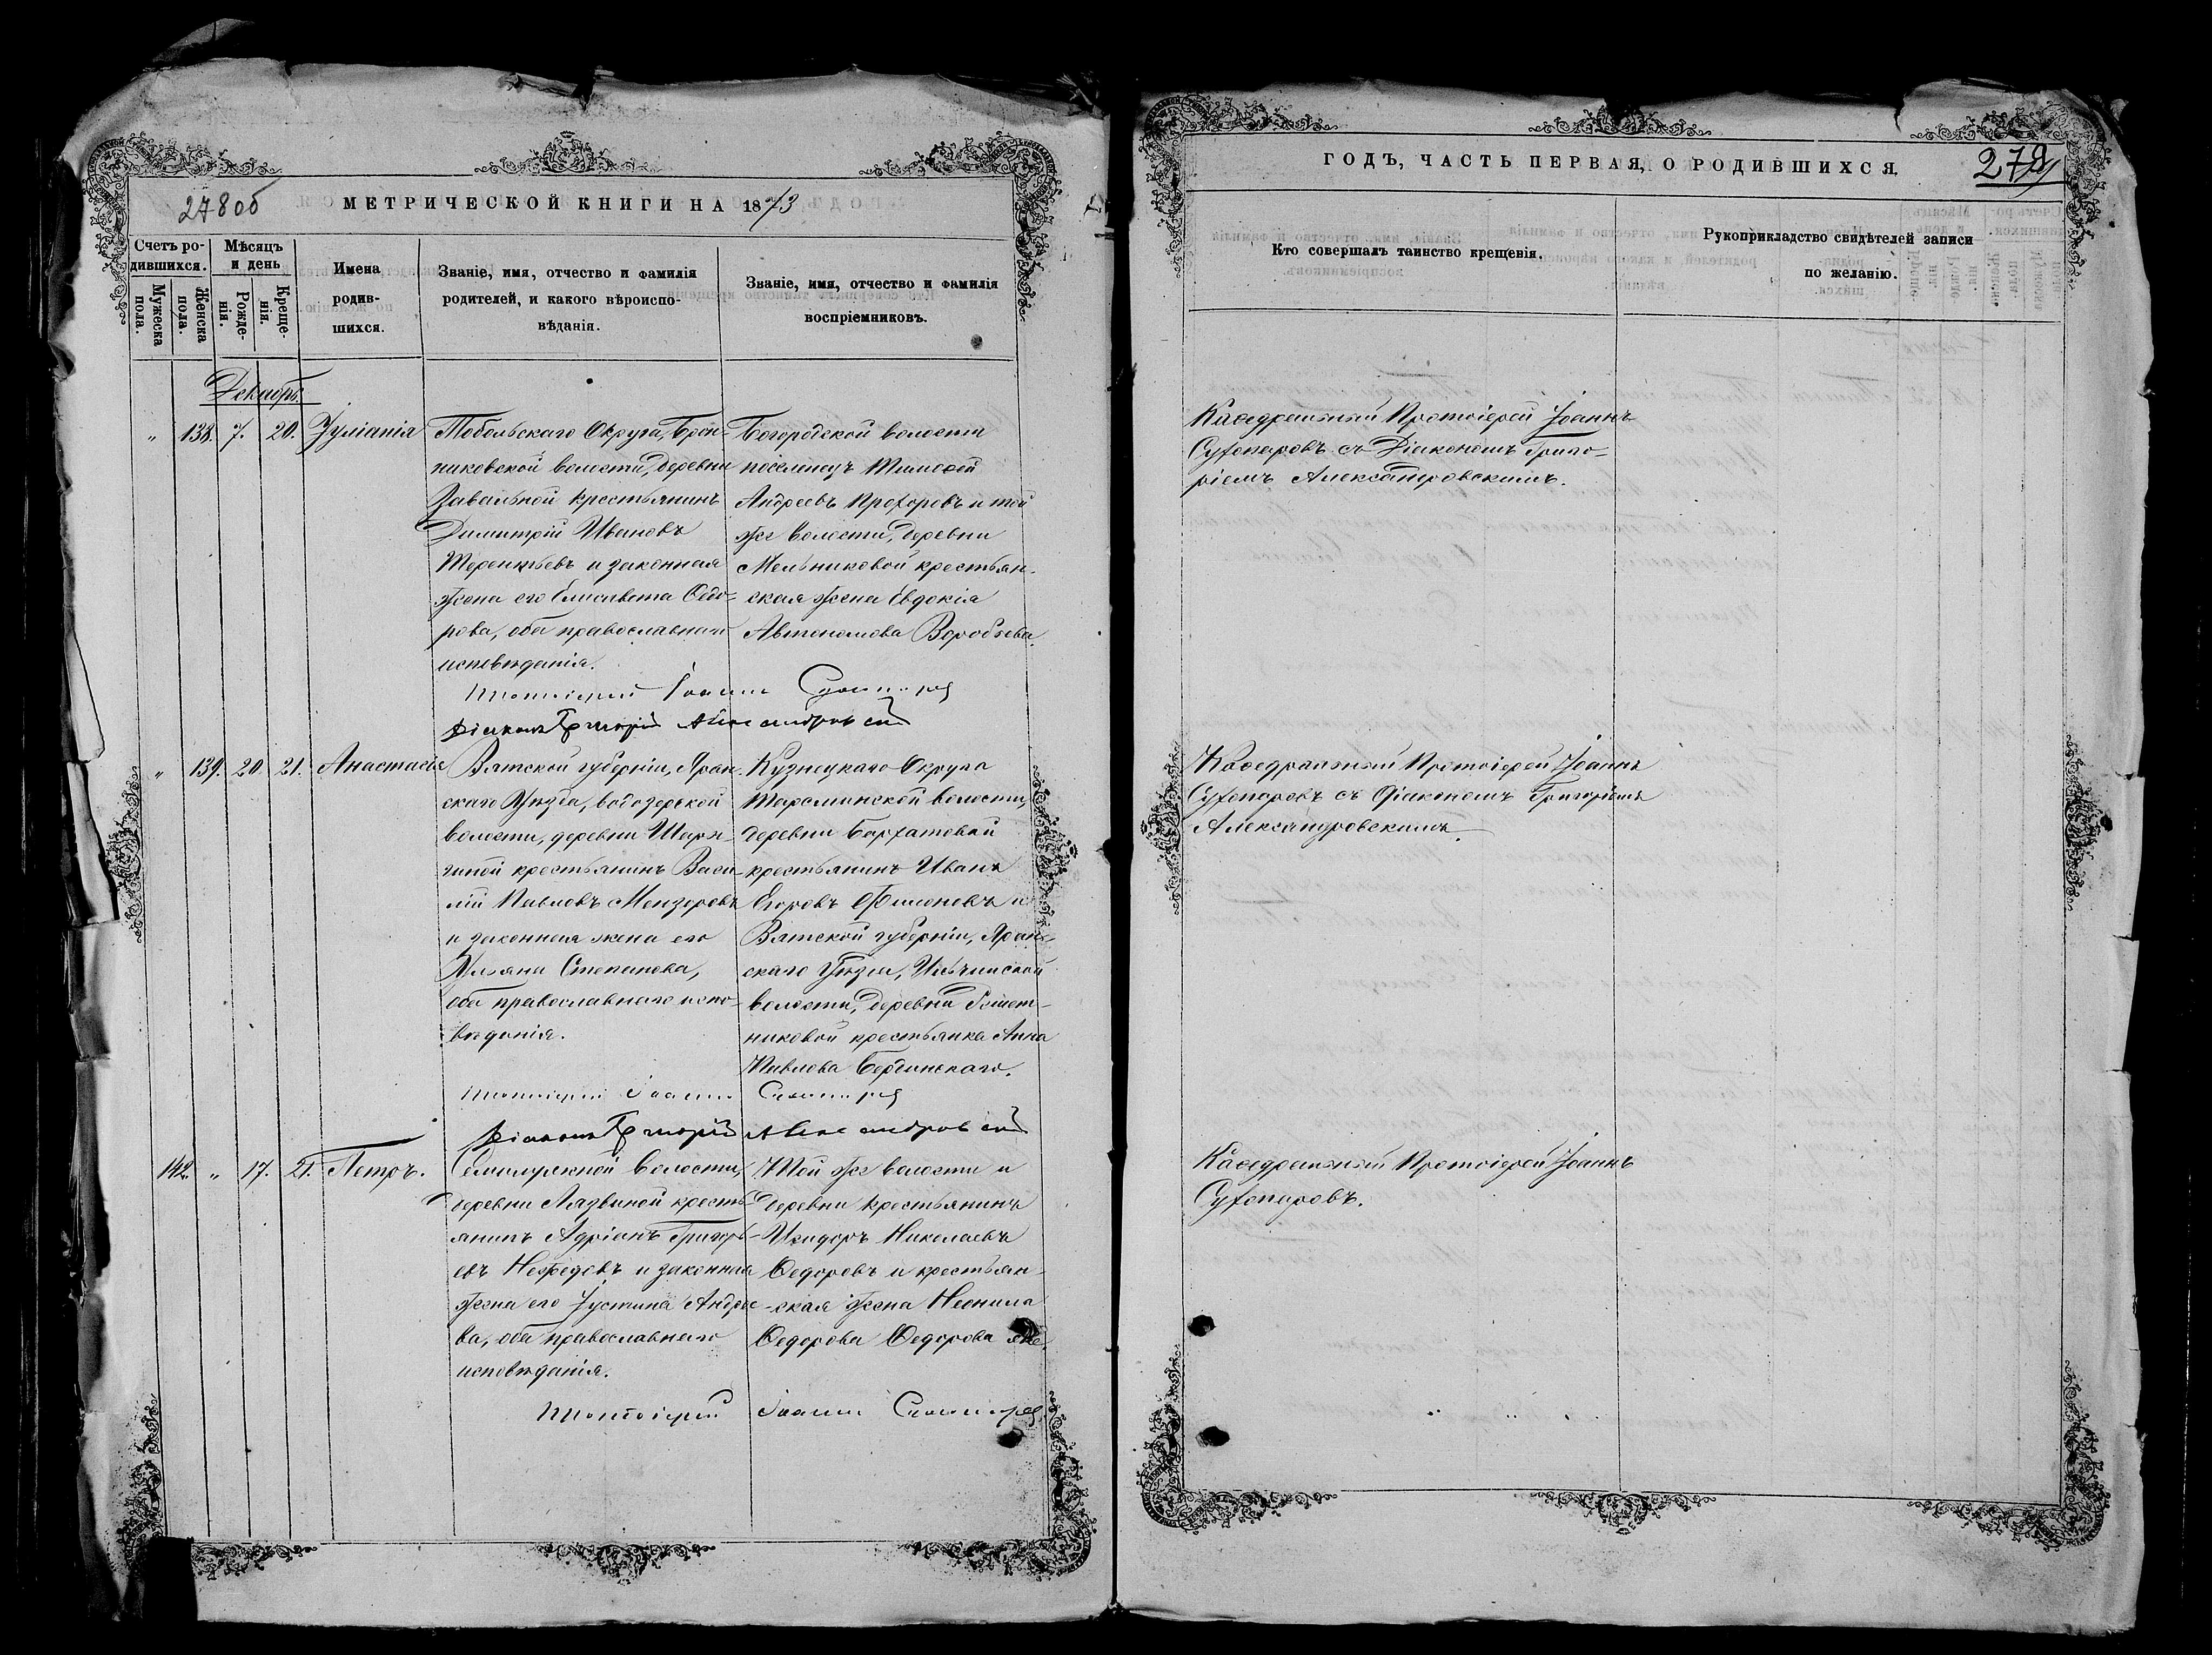 278об
МЕТРИЧЕСКОЙ КНИГИ НА 1873
Счетъ ро-
дившихся.
Мужеска
пола.
Женска
пола.
Мѣсяцъ
и день
Рожде-
нія.
Креще-
нія.
Имена
родив-
шихся.
Званіе, имя, отчество и фамилія
родителей, и какого вѣроиспо-
вѣданія.
Званіе, имя, отчество и фамилія
воспріемниковъ.
Декабрь.
„ 138. 7. 20. Іуліанія
Тобольскаго Округа, Брон-
никовской волости, деревни
Завальной крестьянинъ
Димитрій Ивановъ
Терентьевъ и законная
жена его Елисавета Ѳедо-
рова, оба православнаго
исповѣданія.
Богородской волости
поселенецъ Тимоѳей
Андреевъ Прохоровъ и той
же волости, деревни
Мельниковой крестьян-
ская жена Евдокія
Автономова Воробьева.
Протоіерей Іоаннъ Сухопаровъ
Діаконъ Григорій Александровскій
„ 139. 20. 21. Анастасія
Вятской губерніи, Яран-
скаго Уѣзда,
волости, деревни
крестьянинъ Васи-
лій Павловъ Мензоровъ
и законная жена его
Ульяна Степанова,
оба православнаго испо-
вѣданія.
Кузнецкаго Округа
Тарсминской волости,
деревни Бархатовой
крестьянинъ Иванъ
Егоровъ Филоновъ и
Вятской губерніи, Яран-
скаго Уѣзда,
волости, деревни Решет-
никовой крестьянка Анна
Павлова
Протоіерей Іоаннъ Сухопаровъ
Діаконъ Григорій Александровскій
142. „ 17. 21. Петръ.
Семилужной волости,
деревни Лязгиной кресть-
янинъ Адріанъ Григорь-
евъ Нефедовъ и законная
жена его Іустина Андрее-
ва, оба православнаго
исповѣданія.
Той же волости и
деревни крестьянинъ
Исидоръ Николаевъ
Ѳедоровъ и крестьян-
ская жена Неонила
Ѳедорова Ѳедорова же.
Протоіерей Іоаннъ Сухопаровъ
ГОДЪ, ЧАСТЬ ПЕРВАЯ, О РОДИВШИХСЯ.
279
Кто совершалъ таинство крещенія.
Рукоприкладство свидѣтелей записи
по желанію.
Каѳедральный Протоіерей Іоаннъ
Сухопаровъ съ Діакономъ Григо-
ріемъ Александровскимъ.
Каѳедральный Протоіерей Іоаннъ
Сухопаровъ съ Діакономъ Григоріемъ
Александровскимъ.
Каѳедральный Протоіерей Іоаннъ
Сухопаровъ.